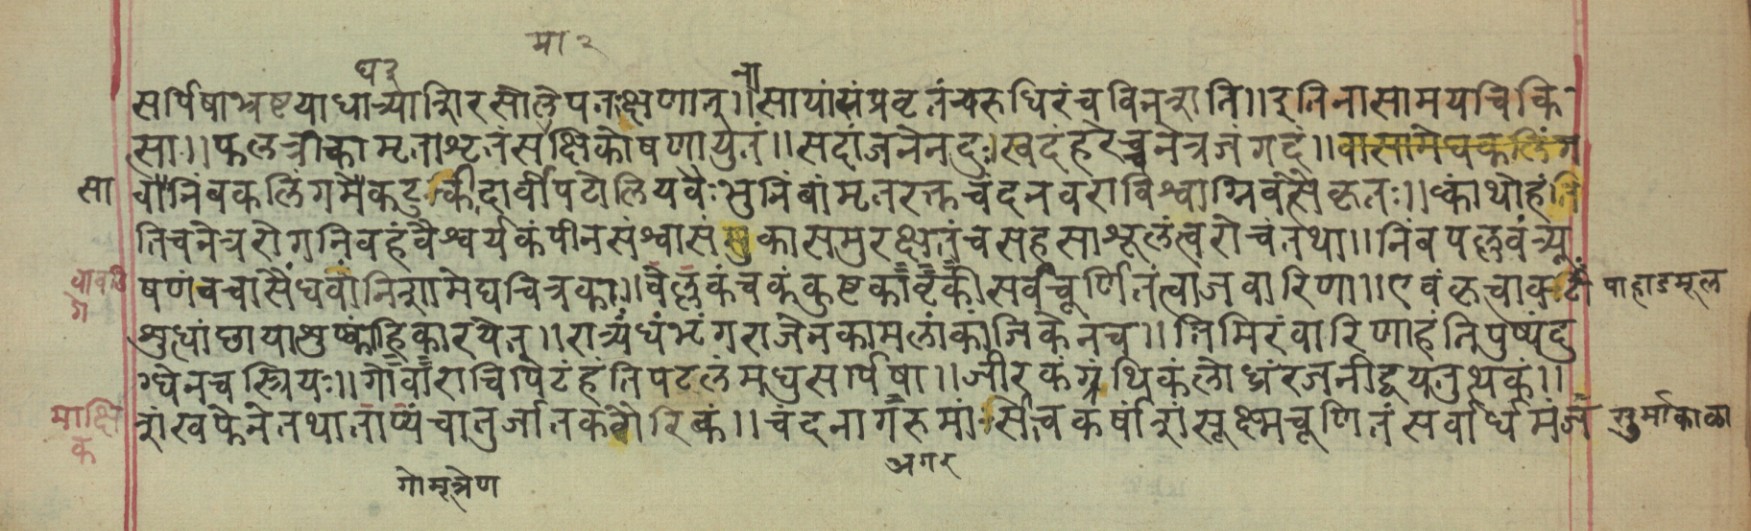 मा २
घ३
सर्पिषाभ्रष्टयाधात्र्याशिरसोलेपतःक्षणात्॥नासायांसंप्रवृतंचरुधिरंचविनश्यति॥इतिनासामयचिकि
त्सा॥फलत्रीकामृताशृतंसक्षिकोषणायुतं॥सदांजनेनदुःखदंहरेच्चनेत्रजंगदं॥वासामेघकलिंग
सा
वानिंबकलिंगमेकटुकीदार्वीपटोलियवैःभुनिंबांमृतरक्तचंदनवराविश्वाग्निवत्सैकृतः॥क्वाथोहंति
तिचनेत्ररोगनिवहंवैश्वर्यकंपीनसंश्वासंकासमुरक्षतंचसहसाशूलंत्वरोचंतथा॥निंबपल्लवंत्र्यू
षणंवचासैंधवंनिशामेघचित्रका॥वेल्लकंचकंकुष्टकंसर्वचूर्णितंत्वाजवारिणा॥एवंकृत्वाकटी
पाहाडमूल
शुत्धांछायाशुष्कांहिकारयेत्॥रात्र्यंधंभृंगराजेनकामलांकांजिकेनच॥तिमिरंवारिणाहंतिपुष्पंदु
ग्धेनचस्त्रियः॥गोर्वाराचिपिटंहंतिपटलंमधुसर्पिषा॥जीरकंग्रंथिकंलोध्रंरजनीद्वयतुथकं॥
माक्षि
क
शंखफेनंतथाताप्यंचातुर्जातकगैरिकं॥चंदनागरुमांसिचकर्षांशंसूक्ष्मचूर्णितंसर्वार्धमंज
सुर्माकाळा
अगर
गोमूत्रेण